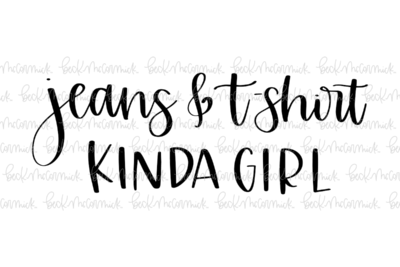 jeans & t-shirt
KINDA GIRL